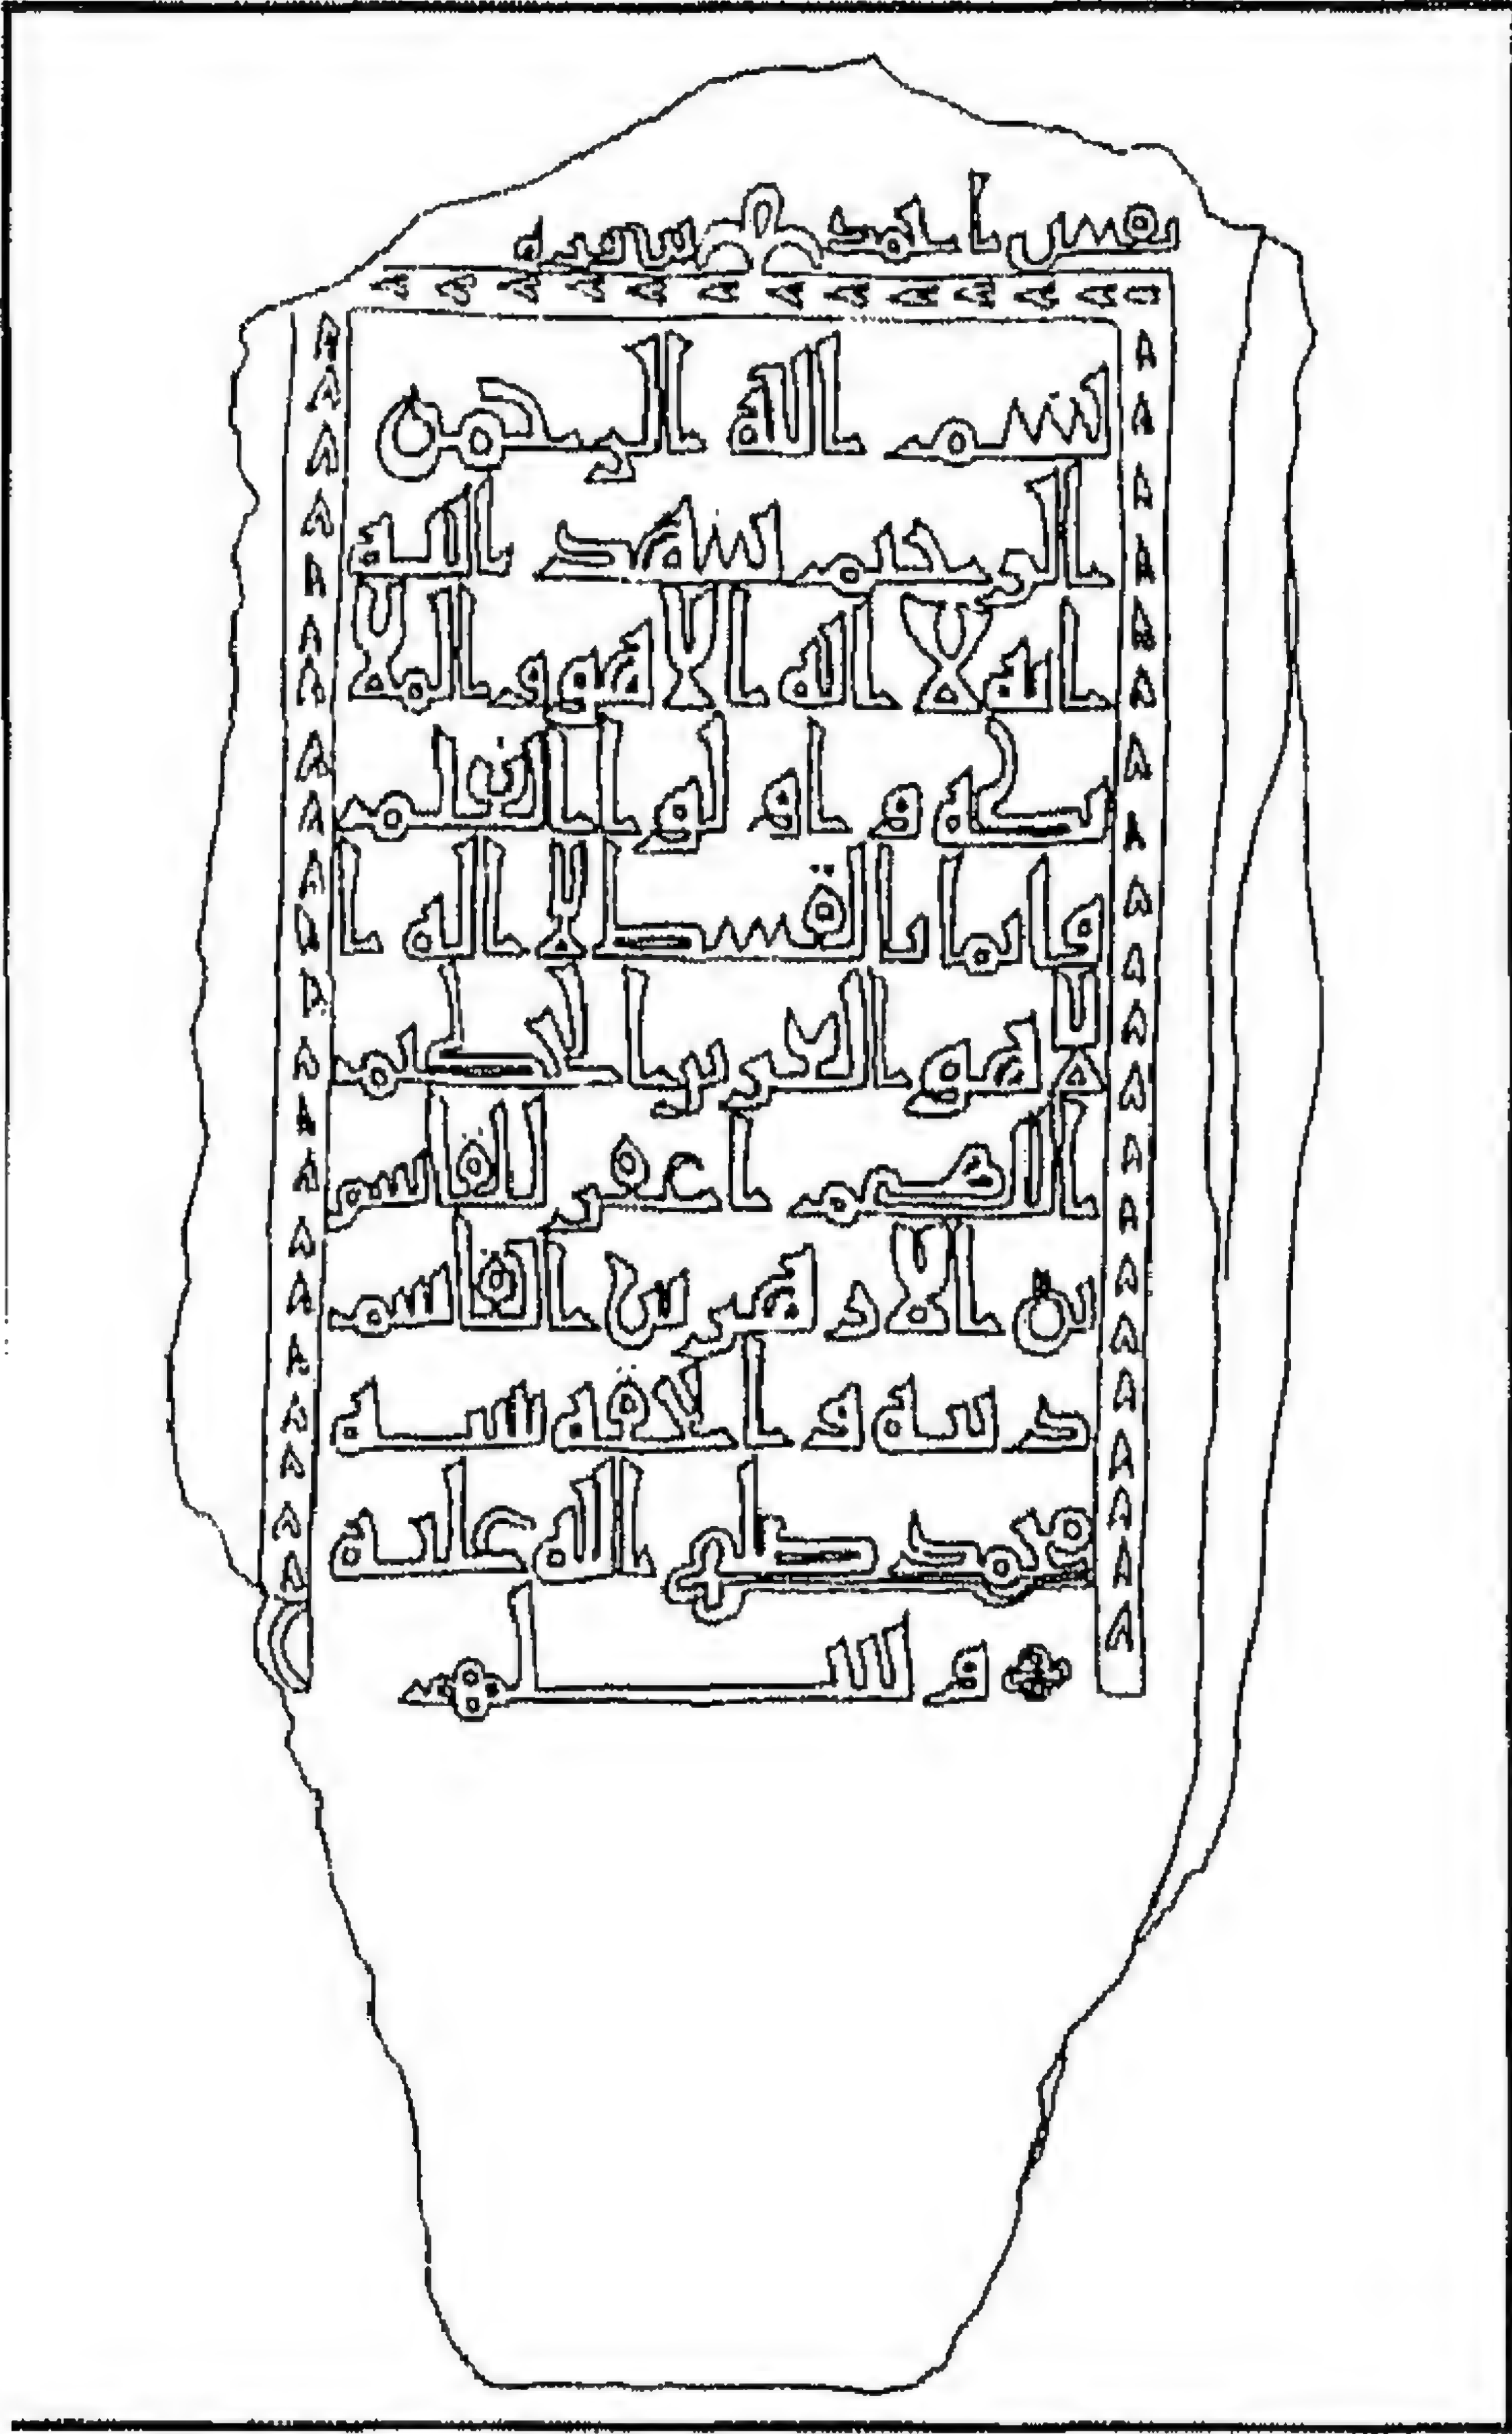 بسم الله الرحمن
الرحيم شهد الله
انه لا اله الا هو والملا
ئكه و اولوا العلم
قايما بالقسط لا اله ا
لا هو العزيز الحكيم
اللهم اغفر للقاسم
بن الازهر بن القاسم
و الحقه بنبيه
محمد صلى الله عليه
و سلم